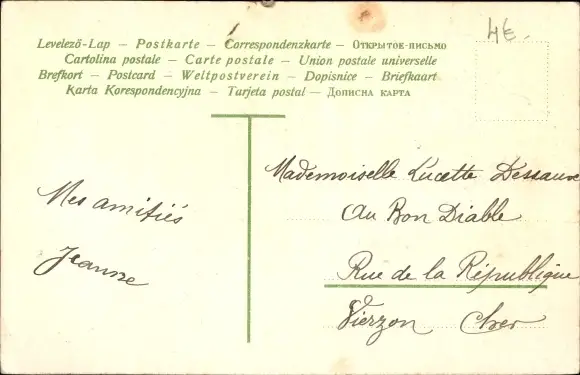 4€
Levelező-Lap – Postkarte – Correspondenzkarte – Открытое-письмо
Cartolina postale – Carte postale – Union postale universelle
Brefkort – Postcard – Weltpostverein – Dopisnice – Briefkaart
Karta Korespondencyjna – Tarjeta postal – Дописна карта
Mes amitiés
Jeanne
Mademoiselle Lucette
Au Bon Diable
Rue de la République
Vierzon Cher